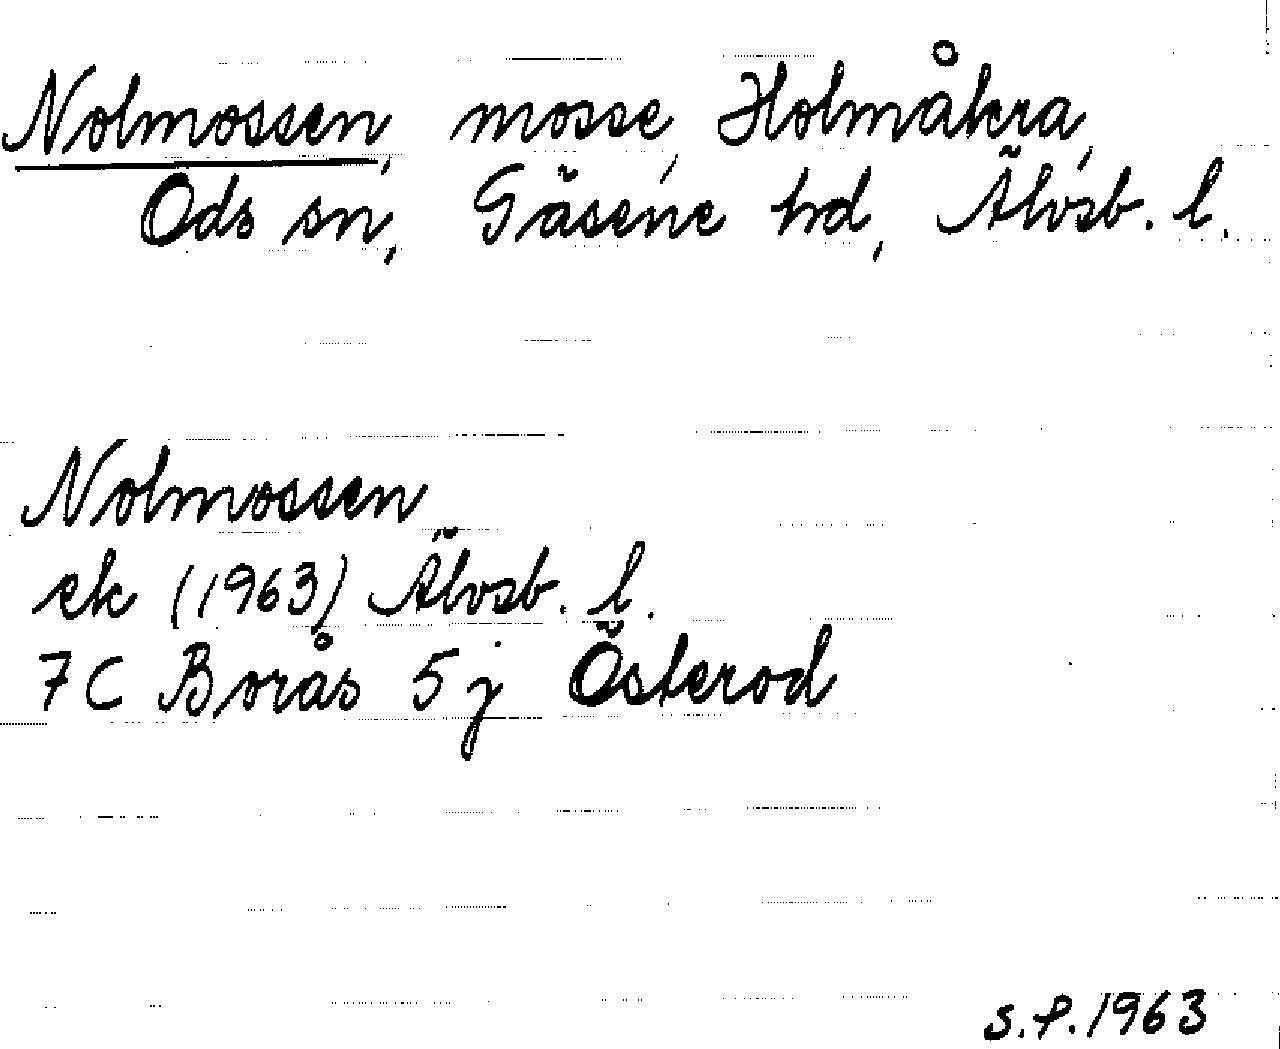 Nolmossen, mosse, Holmåkra,
Ods sn, Gäsene hd, Älvsb. l.
Nolmossen
ek (1963) Älvsb. l.
7C Borås 5j Österod
S.P. 1963